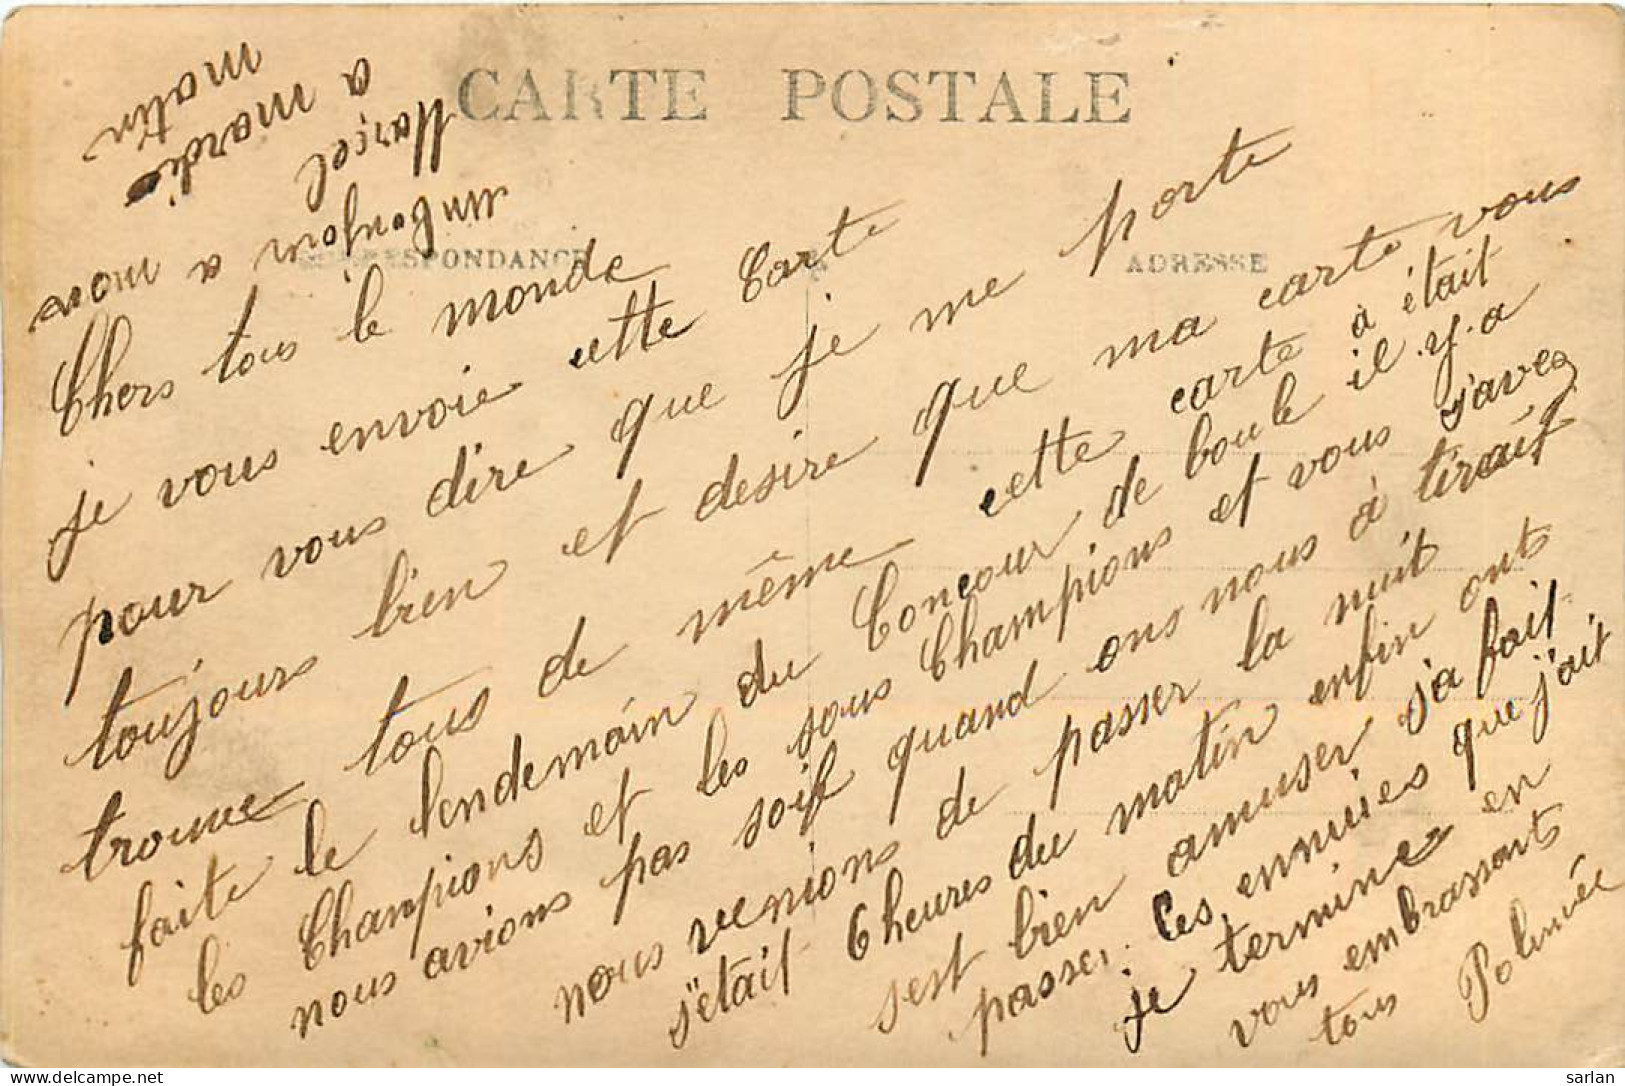 CARTE POSTALE
CORRESPONDANCE
ADRESSE
Chers tous le monde
je vous envoie cette Carte
pour vous dire que je me porte
toujours bien et desire que ma carte vous
trouve tous de même cette carte à était
faite le lendemain du Concour de boule il.y.a
les Champions et les sous Champions et vous s'avez
nous avions pas soif quand ons nous à tirait
nous venions de passer la nuit
s'était 6 heures du matin enfin ons
sest bien amuser s'a fait
passer Ces ennuies que j'ait
je termine en
vous embrassants
tous
un bonjour a mon
Marcel
a mardi
matin
sarlan